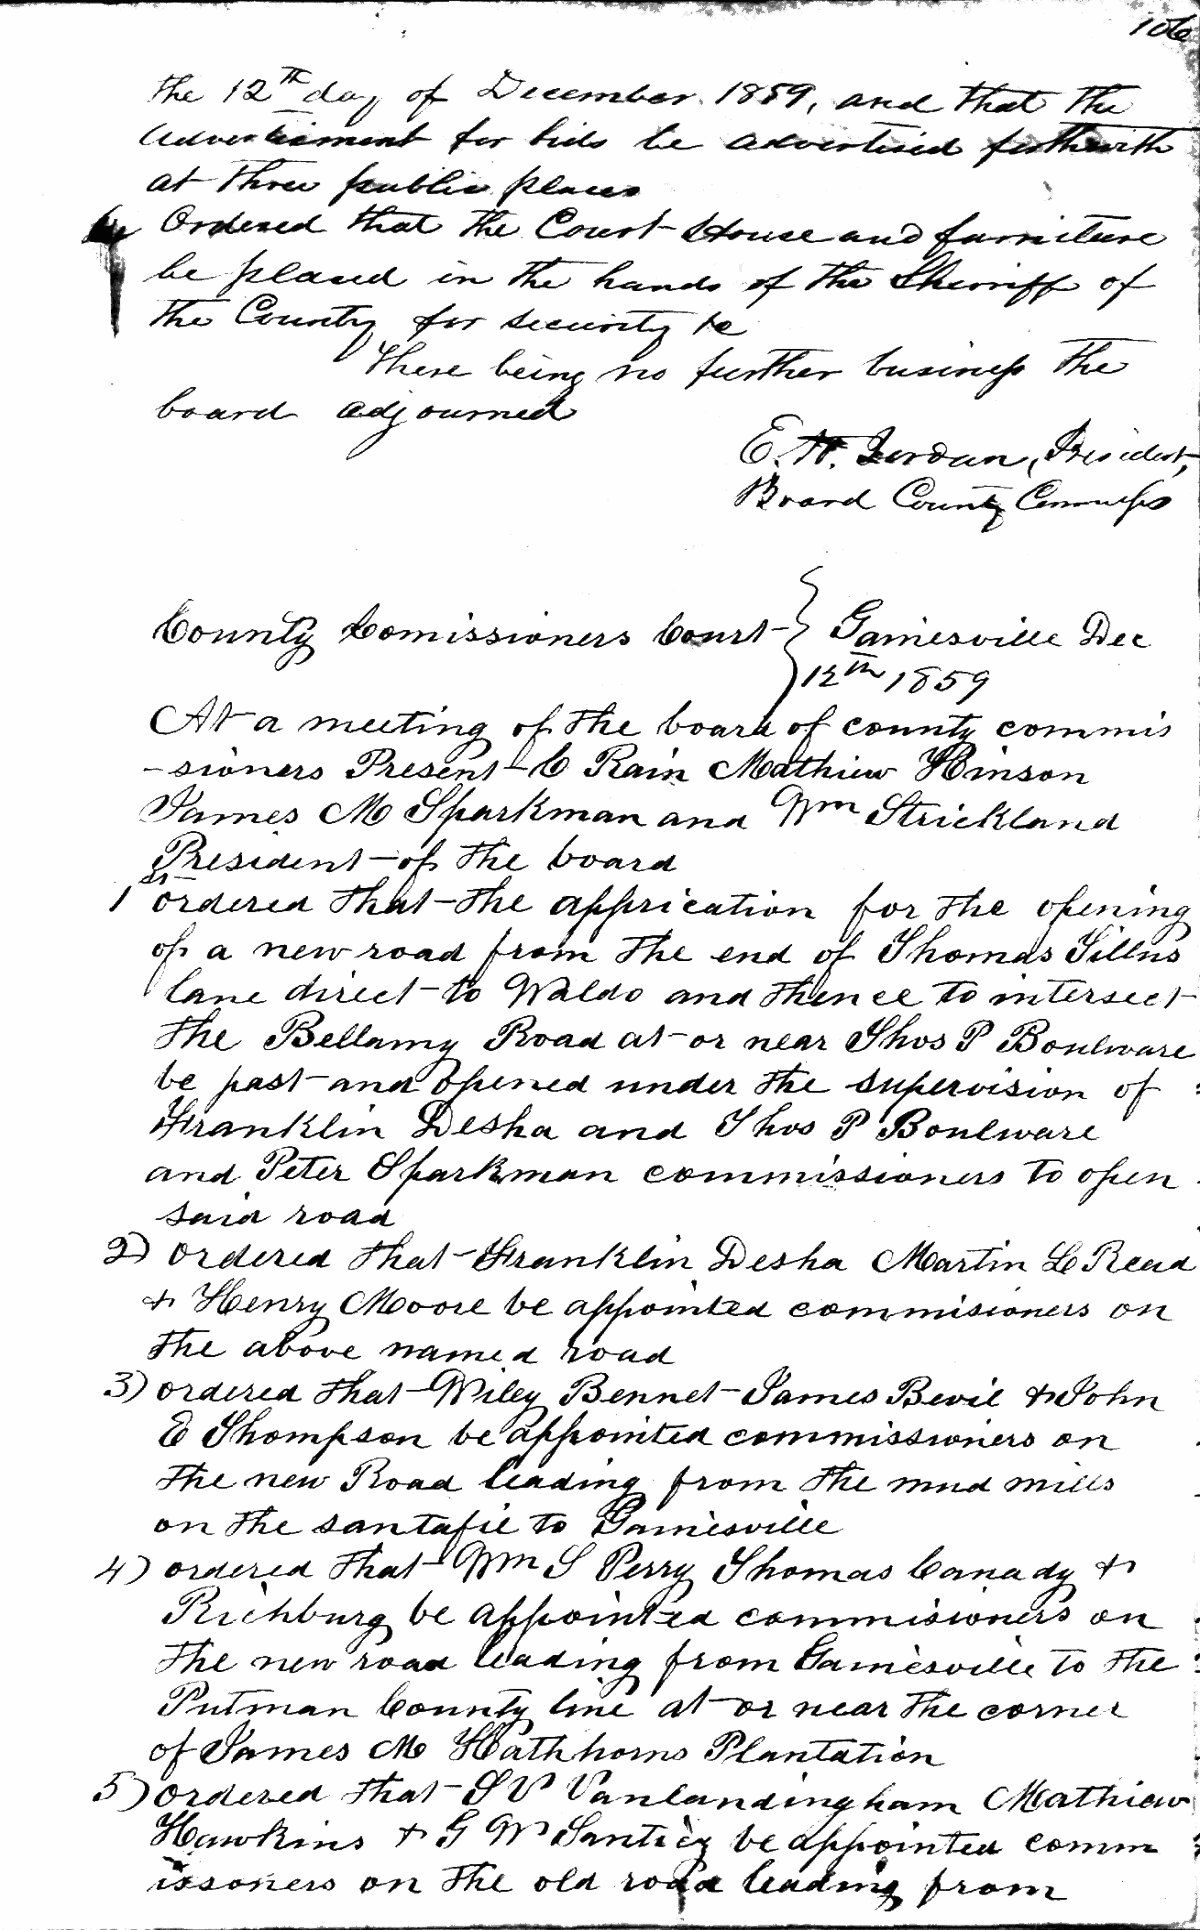 106
the 12th day of December 1859, and that the
advertisment for bids be advertised forthwith
at three public places
Ordered that the Court House and furniture
be placed in the hands of the Sherriff of
the County for security &c
There being no further business the
board adjourned
E. H. Jordan, President,
Board County Commiss
County Comissioners Court } Gainesville Dec
12th 1859
At a meeting of the board of county commis
-sioners Present C Rain Mathiew Hinson
James M Sparkman and Wm Strickland
President of the board
1st ordered that the apprication for the opening
of a new road from the end of Thomas
lane direct to Waldo and thence to intersect
the Bellamy Road at or near Thos P Boulware
be past and opened under the supervision of
Franklin Desha and Thos P Boulware
and Peter Sparkman commissioners to open
said road
2) ordered that Franklin Desha Martin L Read
& Henry Moore be appointed commisioners on
the above named road
3) ordered that Wiley Bennet James Bevil & John
E Thompson be appointed commissioners on
the new Road leading from the mud mills
on the santafie to Gainesville
4) ordered that Wm S Perry Thomas Canady &
Richburg be appointed commisioners on
the new road leading from Gainesville to the
Putman County line at or near the corner
of James M Hathhorns Plantation
5) ordered that S V Vanlandingham Mathiew
Hawkins & G W be appointed comm
issoners on the old road leading from